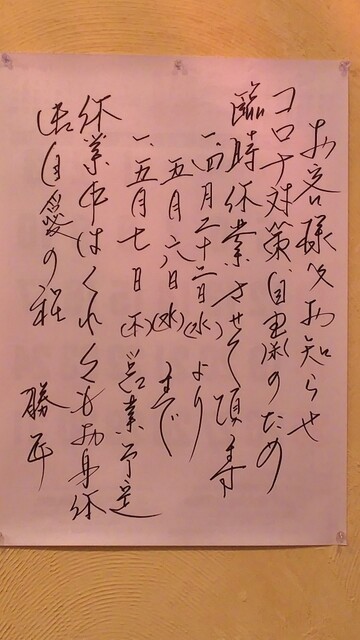 お客様へお知らせ
コロナ対策、自粛のため
臨時休業させて頂ます
一、四月二十二日(水)より
五月六日(水)まで
一、五月七日(木)営業予定
休業中はくれ〲もお身体
御自愛の程